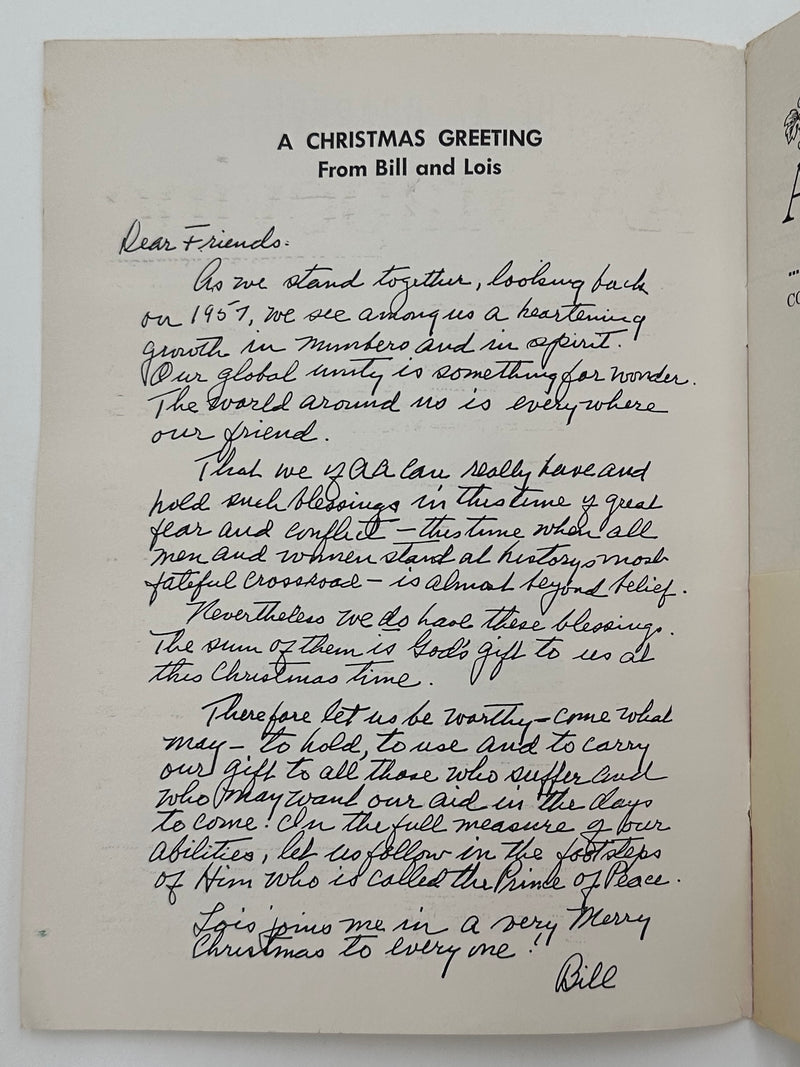 A CHRISTMAS GREETING
From Bill and Lois
Dear Friends:
As we stand together, looking back
on 1957, we see among us a heartening
growth in numbers and in spirit.
Our global unity is something for wonder.
The world around us is everywhere
our friend.
That we of AA can really have and
hold such blessings in this time of great
fear and conflict – this time when all
men and women stand at historys most
fateful crossroad – is almost beyond belief.
Nevertheless we do have these blessings.
The sum of them is God's gift to us at
this Christmas time.
Therefore let us be worthy – come what
may – to hold, to use and to carry
our gift to all those who suffer and
who may want our aid in the days
to come. In the full measure of our
abilities, let us follow in the footsteps
of Him who is called the Prince of Peace.
Lois joins me in a very Merry
Christmas to every one!!
Bill
A
...
CO